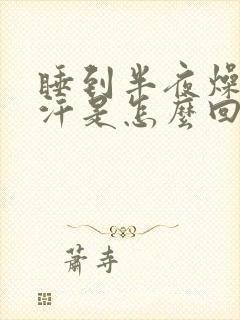 睡到半夜燥
汗是怎麼回
蕭寺